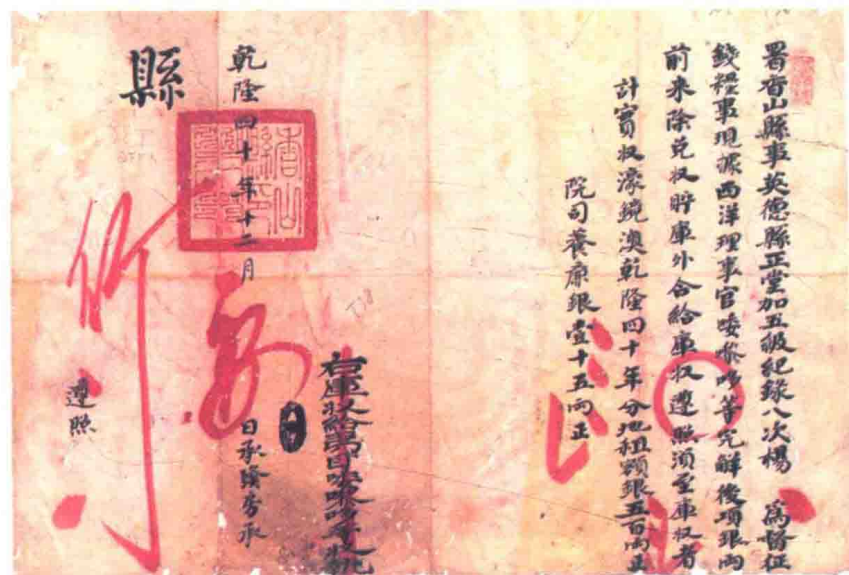 署香山縣事英德縣正堂加五級紀錄八次楊 為督征
錢糧事現據西洋理事官唩嚟哆等完解後項銀兩
前來除兌收貯庫外合給庫收遵照須至庫收者
計實收濠鏡澳乾隆四十年分地租額銀五百兩正
院司養廉銀壹十五兩正
右庫收給夷目唩嚟哆等收執
乾隆四十年十二月 日承
縣
遵照